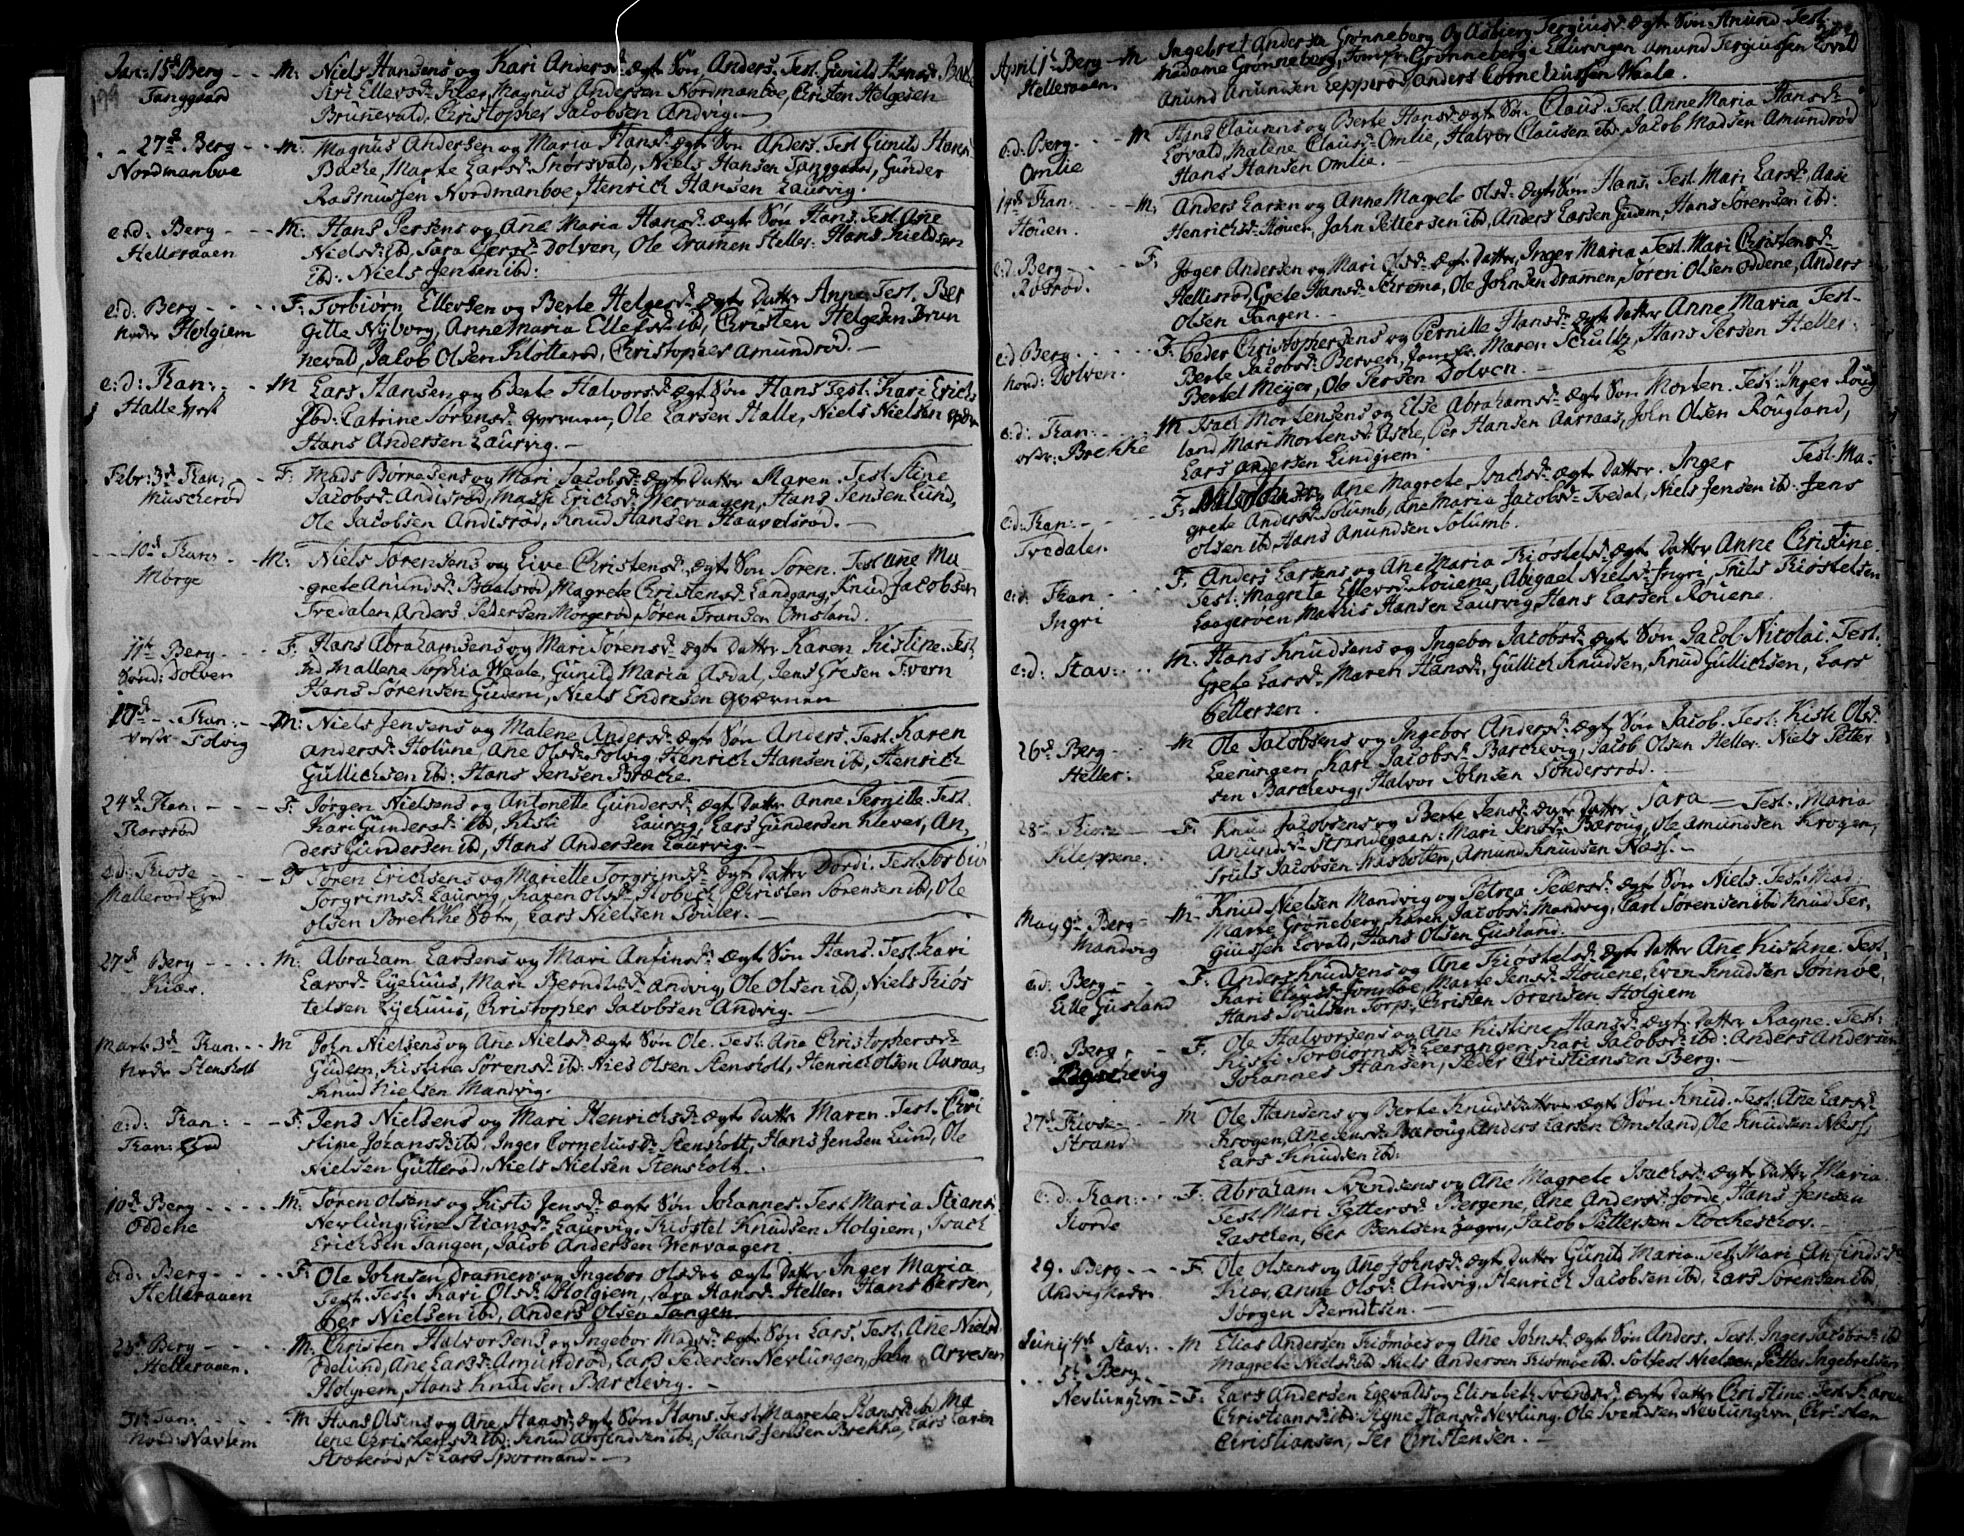 Jan: 15d Berg - - M: Niels Hansens og Kari Andersd. ægte Søn Anders. Test. Gunild Hansd. Bakke
Tanggaard Siri Ellevsd. Kiær, Magnus Andersen Nordmanboe, Christen Helgesen
Brunevald, Christopher Jacobsen Andvig.
27d Berg - - M: Magnus Andersen og Maria Hansd. ægte Søn Anders. Test Gunild Hansd.
Nordmanboe Bakke, Marte Larsd. Snørsvald, Niels Hansen Tanggaard, Gunder
Rasmussen Nordmanboe, Henrich Hansen Laurvig.
e:d: Berg - - M: Hans Persens og Ane Maria Hansd. ægte Søn Hans. Test. Ane
Helleraaen Nielsd. ibd, Sara Dolven, Ole Dramen Heller. Hans Kieldsen
ibd: Niels Jensen ibd:
e:d: Berg - - - F: Torbiørn Ellevsen og Berte Helgesd. ægte Datter Anne. Test. Ber
nedre Holgiem gitte Nyborg, Anne Maria Ellefsd. ibd, Christen Helgesen Brun
nevald, Jacob Olsen Kløtterød, Christopher Amundrød.
e:d: Tian: - - M Lars Hansen og Berte Halvorsd. ægte Søn Hans Test: Kari Erichsd.
Halle ibd: Catrine Sørensd. Qværnen, Ole Larsen Halle, Niels Nielsen
Hans Andersen Laurvig.
Febr: 3d Tian: - F: Mads Børresens og Mari Jacobsd. ægte Datter Maren. Test. Stine
Muscherød Jacobsd. Andisrød, Erichsd. Wervaagen, Hans Jensen Lund,
Ole Jacobsen Andisrød, Knud Hansen Haavelsrød.
10d Tian: - - M: Niels Sørensens og Live Christensd. ægte Søn Søren. Test Ane Ma
Mørge grete Amundsd. Baalsrød, Magrete Christensd. Landgang, Knud Jacobsen
Tvedalen, Anders Pedersen Mørgerød, Søren Fransen Omsland.
11te Berg - - - F: Hans Abrahamsens og Mari Sørensd. ægte Datter Karen Kistine. Test.
Sønd: Dolven Mallena Sophia Waale, Gunild Maria Asdal, Jens Gresen Tvern
Hans Sørensen Gudem, Niels Endresen Qværnen
17d - - Tian: - - M: Niels Jensens og Malene Andersd. ægte Søn Anders. Test. Karen
Vestr Solvig Andersd. Holune, Ane Olsd. Solvig, Henrich Hansen ibd, Henrich
Gullichsen ibd: Hans Jensen Bræche.
24d Tian: - - - F: Jørgen Nielsens og Antonette Gundersd. ægte Datter Anne Pernille. Test.
Rorsrød Kari Gundersd. ibd, Kisti Laurvig, Lars Gundersen Klever, An
ders Gundersen ibd, Hans Andersen Laurvig.
e:d: Kiose - - - F Søren Erichsens og Mariette Torgrimsd. ægte Datter Dordi. Test. Torbiør
Mallerød Eyed Torgrimsd. Laurvig, Karen Olsd. Hobeck, Christen Sørensen ibd, Ole
Olsen Brekke Sætr, Lars Nielsen Pouler.
27d Berg - - - - M: Abraham Larsens og Mari Anfinsd. ægte Søn Hans. Test. Kari
Kiær. Larsd. Lychuus, Mari Berndtsd. Andvig, Ole Olsen ibd, Niels Kiøs
telsen Lychuus, Christopher Jacobsen Andvig.
Marts 3d Tian: - - M John Nielsens og Ane Nielsd. ægte Søn Ole. Test. Ane Christophersd.
nedr Stensholt Gudem, Kistine Sørensd. ibd. Nies Olsen Stensholt, Henrich Olsen Aaraas,
Knud Nielsen Mandvig.
e:d: Tian: - - F: Jens Nielsens og Mari Henrichsd. ægte Datter Maren. Test. Chri
Tian: Eyed stine Johansd. ibd, Inger Corneliusd. Stensholt, Hans Jensen Lund, Ole
Nielsen Gutterød, Niels Nielsen Stensholt.
10d Berg - - - - M: Søren Olsens og Kiste Jensd. ægte Søn Johannes. Test Maria Stiansd.
Oddene Nevlung, Line Stiansd. Laurvig, Kiøstel Knudsen Holgiem, Isach
Erichsen Tangen, Jacob Andersen Wervaagen.
e:d: Berg - - - - F: Ole Johnsen Dramens og Ingebor Olsdr. ægte Datter Inger Maria
Helleraaen Test. Test. Kari Olsd. Holgiem, Sara Hansd. Heller. Hans Persen,
Per Nielsen ibd, Anders Olsen Tangen.
25d Berg - - - M. Christen Halvorsens og Ingebor Madsd. ægte Søn Lars. Test. Ane Nielsd.
Helleraaen. Ødelund, Ane Larsd. Amundrød, Lars Pedersen Nevlungen, John Arvesen
Holgiem, Hans Knudsen Barchevig.
31te Tian: - - - M Hans Olsens og Ane Hansd. ægte Søn Hans. Test. Magrete Hansd. ibd, Ma
Nord: Navlem lene Christensd. ibd. Knud Anfindsen ibd, Hans Jensen Brekke, Lars Larsen
Lars Spormand.
April 1te Berg - M Ingebret Andersen Grønneberg og Asbierg Tergiusd. ægte Søn Amund. Test.
Helleraaen. Madame Grønneberg, Jomfr. Grønneberg Laurvigen Amund Tergiussen Lovald
Amund Amundsen Lepperød, Anders Corneliussen Waale.
e:d: Berg. - - M Hans Clausens og Berte Hansd. ægte Søn Claus. Test. Anne Maria Hansd.
Omlie Lovald, Malene Clausd. Omlie, Halvor Clausen ibd, Jacob Madsen Amundrød
Hans Hansen Omlie.
14d Tian: - - M: Anders Larsen og Anne Magrete Olsd. ægte Søn Hans. Test. Mari Larsd., Aase
Houen. Henrichsd. Houen, John Pettersen ibd, Anders Larsen Gudem, Hans Sørensen ibd:
e:d. Berg - - F: Joger Andersen og Mari Olsd. ægte Datter, Inger Maria. Test. Mari Christensd.
Røsrød. Hellisrød, Grete Hansd. Schroma, Ole Johnsen Dramen, Søren Olsen Oddene, Anders
Olsen Tangen.
e:d Berg. - - - F: Peder Christophersens og Pernille Hansd. ægte Datter Anne Maria. Test.
nord: Dolven. Berte Jacobsd. Berven, Jomfr. Maren Schultz, Hans Persen Heller:
Bertel Meyer, Ole Persen Dolven.
e:d: Tian: - - - M Isach Mortensens og Else Abrahamsd. ægte Søn Morten. Test: Inger Roug
østr: Brekke land, Mari Mortensd. Aske, Per Hansen Aarraas, John Olsen Rougland,
Lars Andersen Lindgiem.
e:d: Tian: - - - F: og Ane Magrete Isachsd. ægte Datter. Inger Test. Ma=
Tvedalen. grete Andersd. Solumb, Ane Maria Jacobsd. Tvedal, Niels Jensen ibd. Jens
Olsen ibd, Hans Amundsen Solumb.
e:d. Tian - - - F. Anders Larsens og Ane Maria Kiøstelsd. ægte Datter Anne Christine.
Ingri Test. Magrete Ellevsd. Rouene, Abigael Nielsd. Ingri, Truls Kiøstelsen
Laagerøen, Mathis Hansen Laurvig, Hans Larsen Rouene.
e:d: Stav: . . . M: Hans Knudsens og Ingebor Jacobsd. ægte Søn Jacob Nicolai. Test.
Grete Larsd. Maren Hansd. Gullich Knudsen, Knud Gullichsen, Lars
Pettersen.
26d Berg - - - M Ole Jacobsens og Ingebor Andersd. ægte Søn Jacob. Test: Kisti Olsd.
Heller: Leeningen, Kari Jacobsd. Barchevig, Jacob Olsen Heller. Niels Petter
sen Barchevig, Halvor Johnsen Søndersrød.
28de Kiose - - - F: Knud Jacobsens og Berte Jensd. ægte Datter Sara - Test. Maria
Kleppene. Amundsd. Strandegaan: Mari Jensd. Bæroug, Ole Amundsen Krogen,
Truls Jacobsen Wasbotten, Amund Knudsen Næss.
May 9de Berg - M. Knud Nielsen Mandvig og Petrea Pedersd. ægte Søn Niels. Test: Mad:
Mandvig Marte Grønneberg, Karen Jacobsd. Mandvig, Carl Sørensen ibd Knud Ter,
giussen Lovald, Hans Olsen Gusland.
e:d. Berg - - F: Anders Knudsens og Ane Kiøstelsd. ægte Datter Ane Kistine. Test.
Lille Gusland Kari Clausd. Fonnøe, Marte Jensd. Houene, Even Knudsen Jønnøe,
Hans Poulsen Torp, Christen Sørensen Holgiem
e:d. Berg - - F: Ole Halvorsens og Ane Kistine Hansd. ægte Datter Ragne. Test:
Barchevig Kisti Torbiørnsd. Leerangen, Kari Jacobsd. ibd: Anders Andersen
Johannes Hansen, Peder Christiansen Berg.
27d Kiose - - M Ole Hansens og Berte Knudsdatter ægte Søn Knud. Test. Ane Larsd.
Strand Krogen, Ane Jensd. Bæroug, Anders Larsen Omsland, Ole Knudsen Næss,
Lars Knudsen ibd:
e:d. Tian: . . F: Abraham Svendsens og Ane Magrete Isachsd. ægte Datter Maria.
Jorde Test. Mari Pettersd. Bergene, Ane Andersd. Jorde, Hans Jensen
Laschen, Per Bentsen Hagen, Jacob Pettersen Stocheschov.
29. Berg - - - F. Ole Olsens og Ane Johnsd. ægte Datter Gunild Maria. Test. Mari Anfindsd.
Andvig nedr. Kiær, Anne Olsd. Andvig, Henrich Jacobsen ibd, Lars Sørensen ibd,
Jørgen Berndtsen.
Juny 4de Stav: . M Elias Andersen Kiømøes og Ane Johnsd. ægte Søn Anders. Test. Inger Jacobsd. ibd
Magrete Nielsd. ibd Niels Andersen Kiømøe ibd. Solfest Nielsen, Petter Ingebretsen
5te Berg
Nevlunghvn - F: Lars Andersen Egevalds og Elisabeth Svendsd. ægte Datter Christine. Test. Karen
Christiansd. ibd: Signe Hansd. Nevlung. Ole Svendsen Nevlunghvn, Christen
Christiansen, Per Christensen.